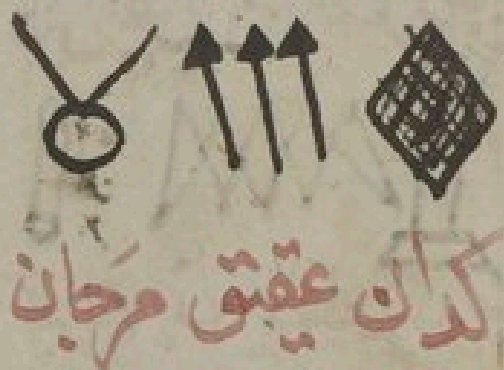 كدان عقيق مرجان